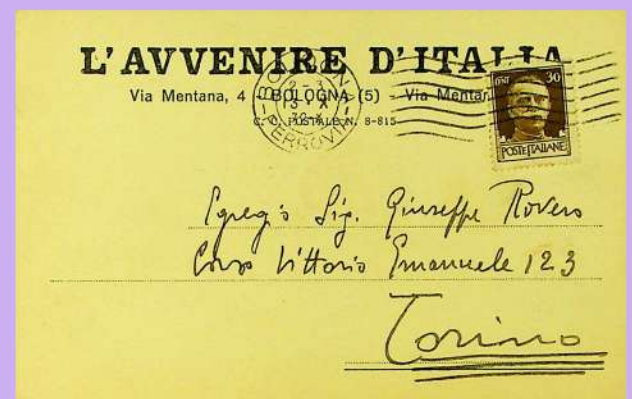 L'AVVENIRE D'ITALIA
Via Mentana, 4 - BOLOGNA (5) - Via Mentan
C. C. POSTALE N. 8-815
FERROVIA
30
POSTE ITALIANE
Egregio Sig. Giuseppe Rovero
Corso Vittorio Emanuele 123
Torino